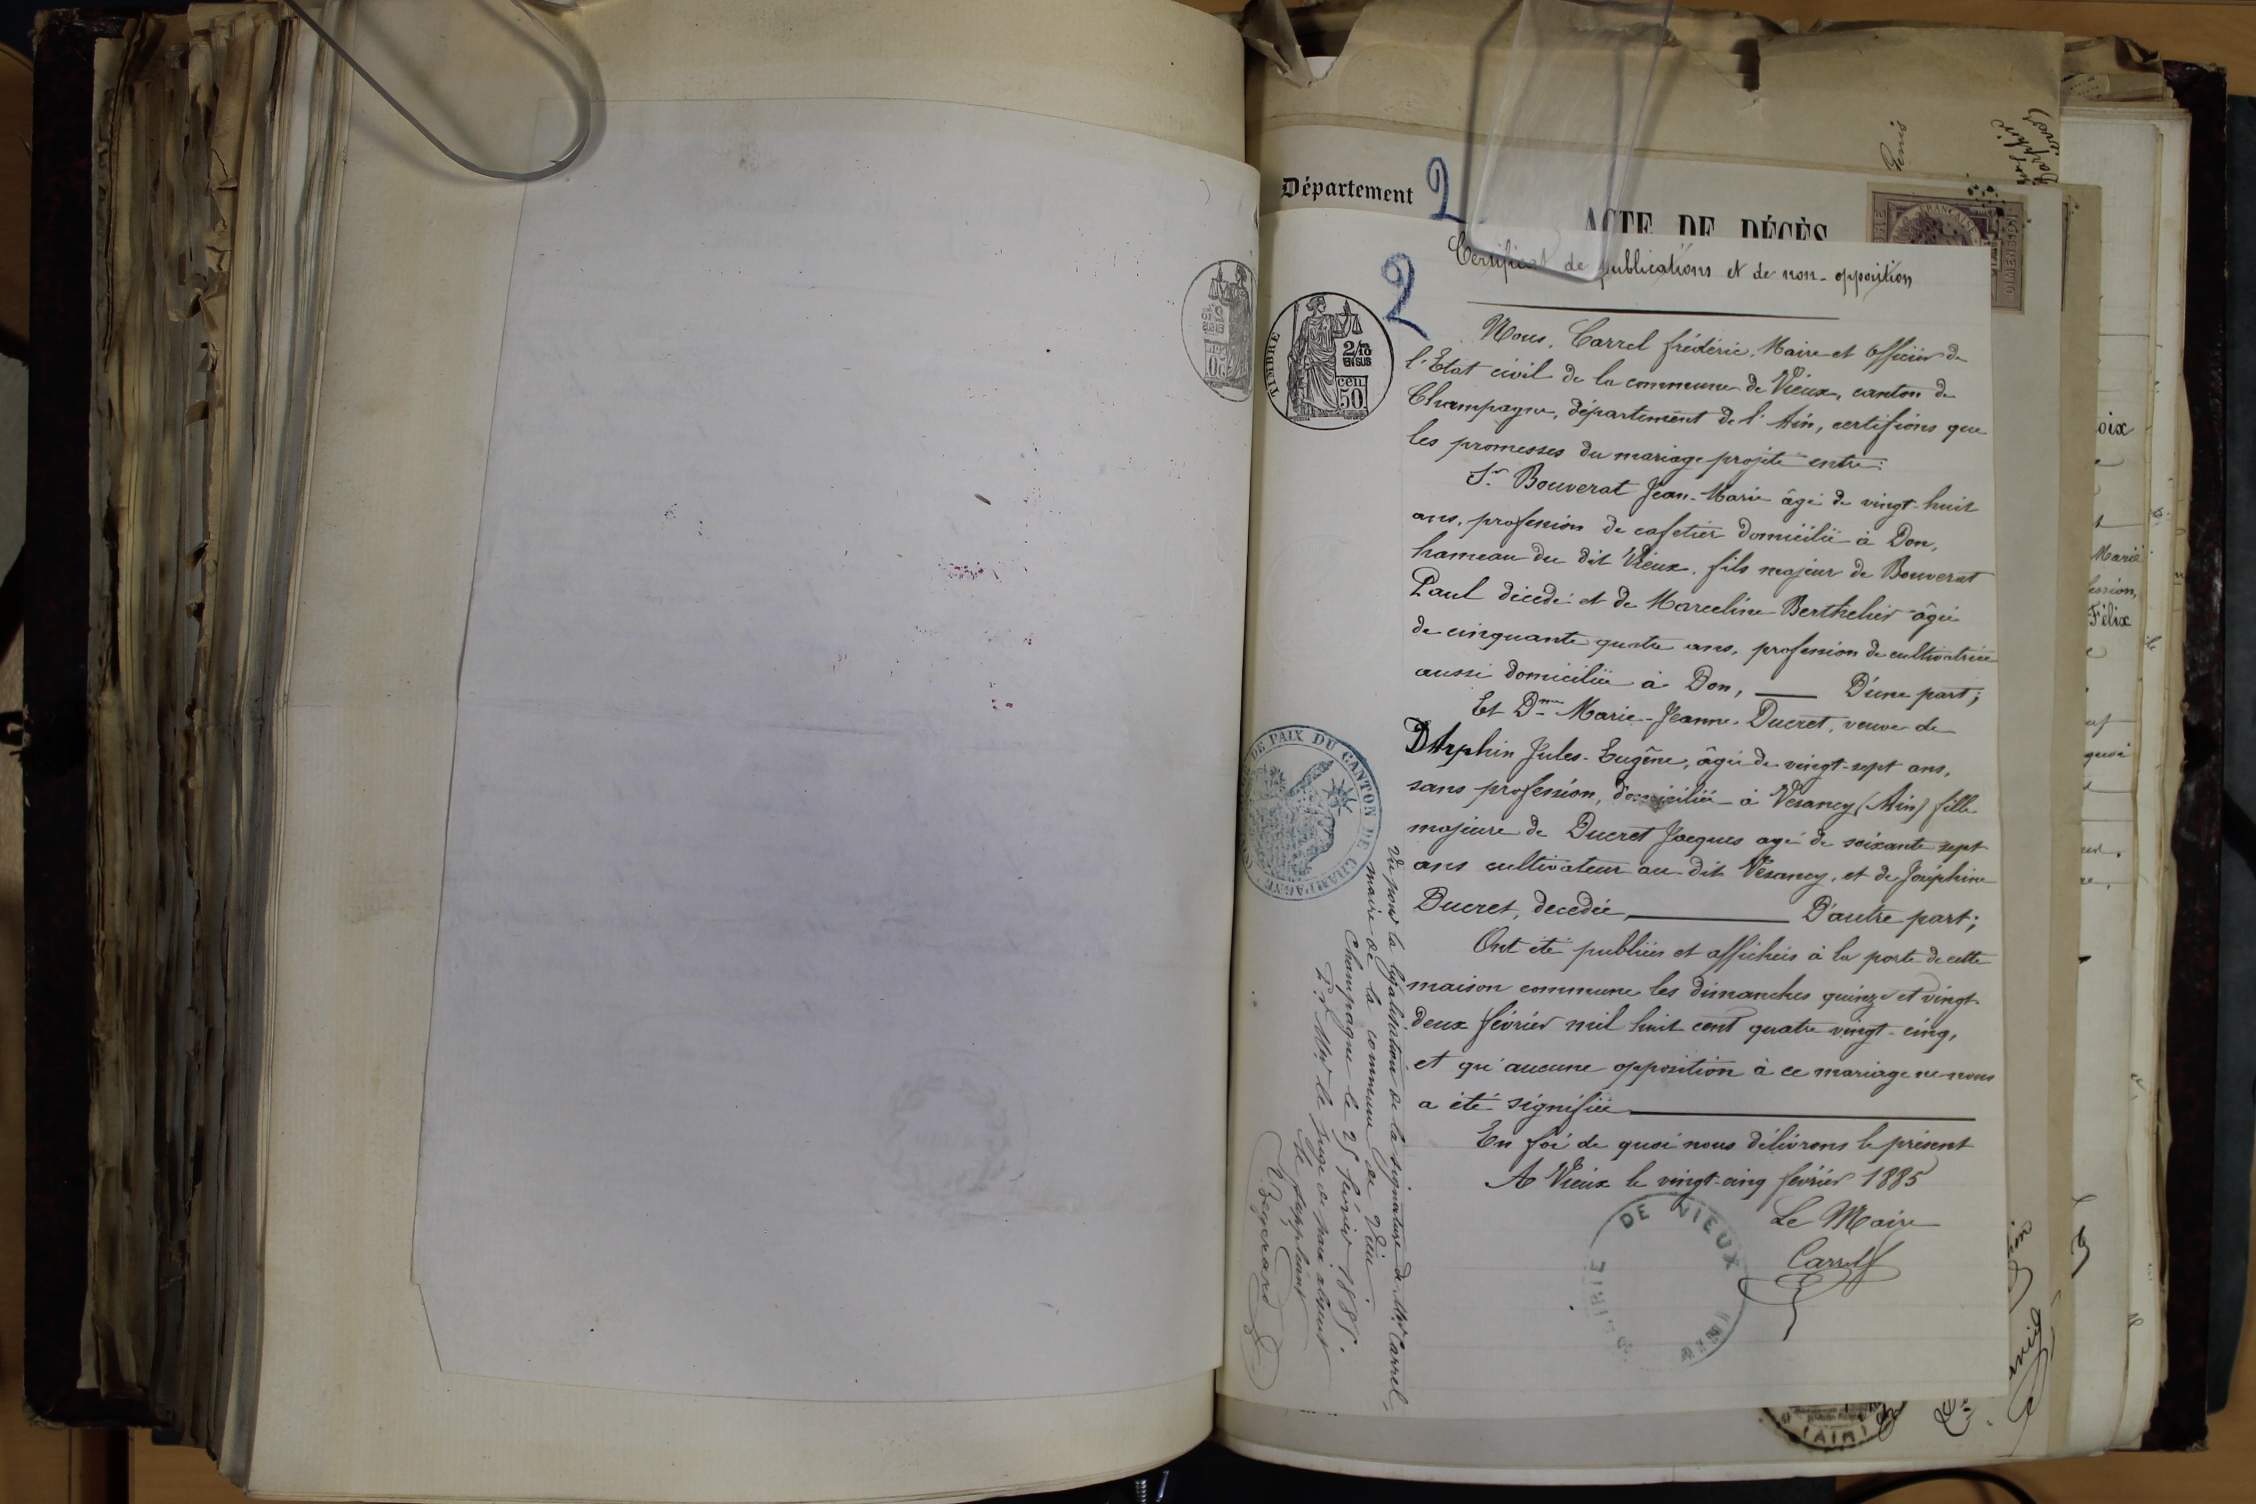 Département
2
ACTE DE DÉCÈS
2
Certificat de publications et de non-opposition
TIMBRE
2/10
EN SUS
cen
50.
Nous, Carrel frédéric, Maire et Officier de
l'Etat civil de la commune de Vieux, canton de
Champagne, département de l'Ain, certifions que
les promesses du mariage projeté entre:
Sr Bouverat Jean-Marie âgé de vingt-huit
ans, profession de cafetier domicilié à Don,
hameau du dit Vieux, fils majeur de Bouverat
Paul décédé et de Marceline Berthelier âgée
de cinquante quatre ans, profession de cultivatrice
aussi domiciliée à Don, D'une part;
Et Dme Marie-Jeanne Ducret, veuve de
DArphin Jules-Eugène, âgée de vingt-sept ans,
sans profession, domiciliée à Vesancy (Ain) fille
majeure de Ducret Jacques agé de soixante sept
ans cultivateur au dit Vesancy, et de Joséphine
Ducret, decedée, D'autre part;
Ont été publiées et affichées à la porte de cette
maison commune les dimanches quinze et vingt-
deux février mil huit cent quatre vingt-cinq,
et qu'aucune opposition à ce mariage ne nous
a été signifiée
En foi de quoi nous délivrons le présent
A Vieux le vingt-cinq février 1885
Le Maire
Carrel
DE VIEUX
DE PAIX DU CANTON DE CHAMPAGNE
Vu pour la légalisation de la signature de Mr Carrel,
maire de la commune de Vieu.
Champagne le 25 février 1885.
Pr Mr le juge de paix absent
Le suppléant
(AIN)
oix
Marie
Félix